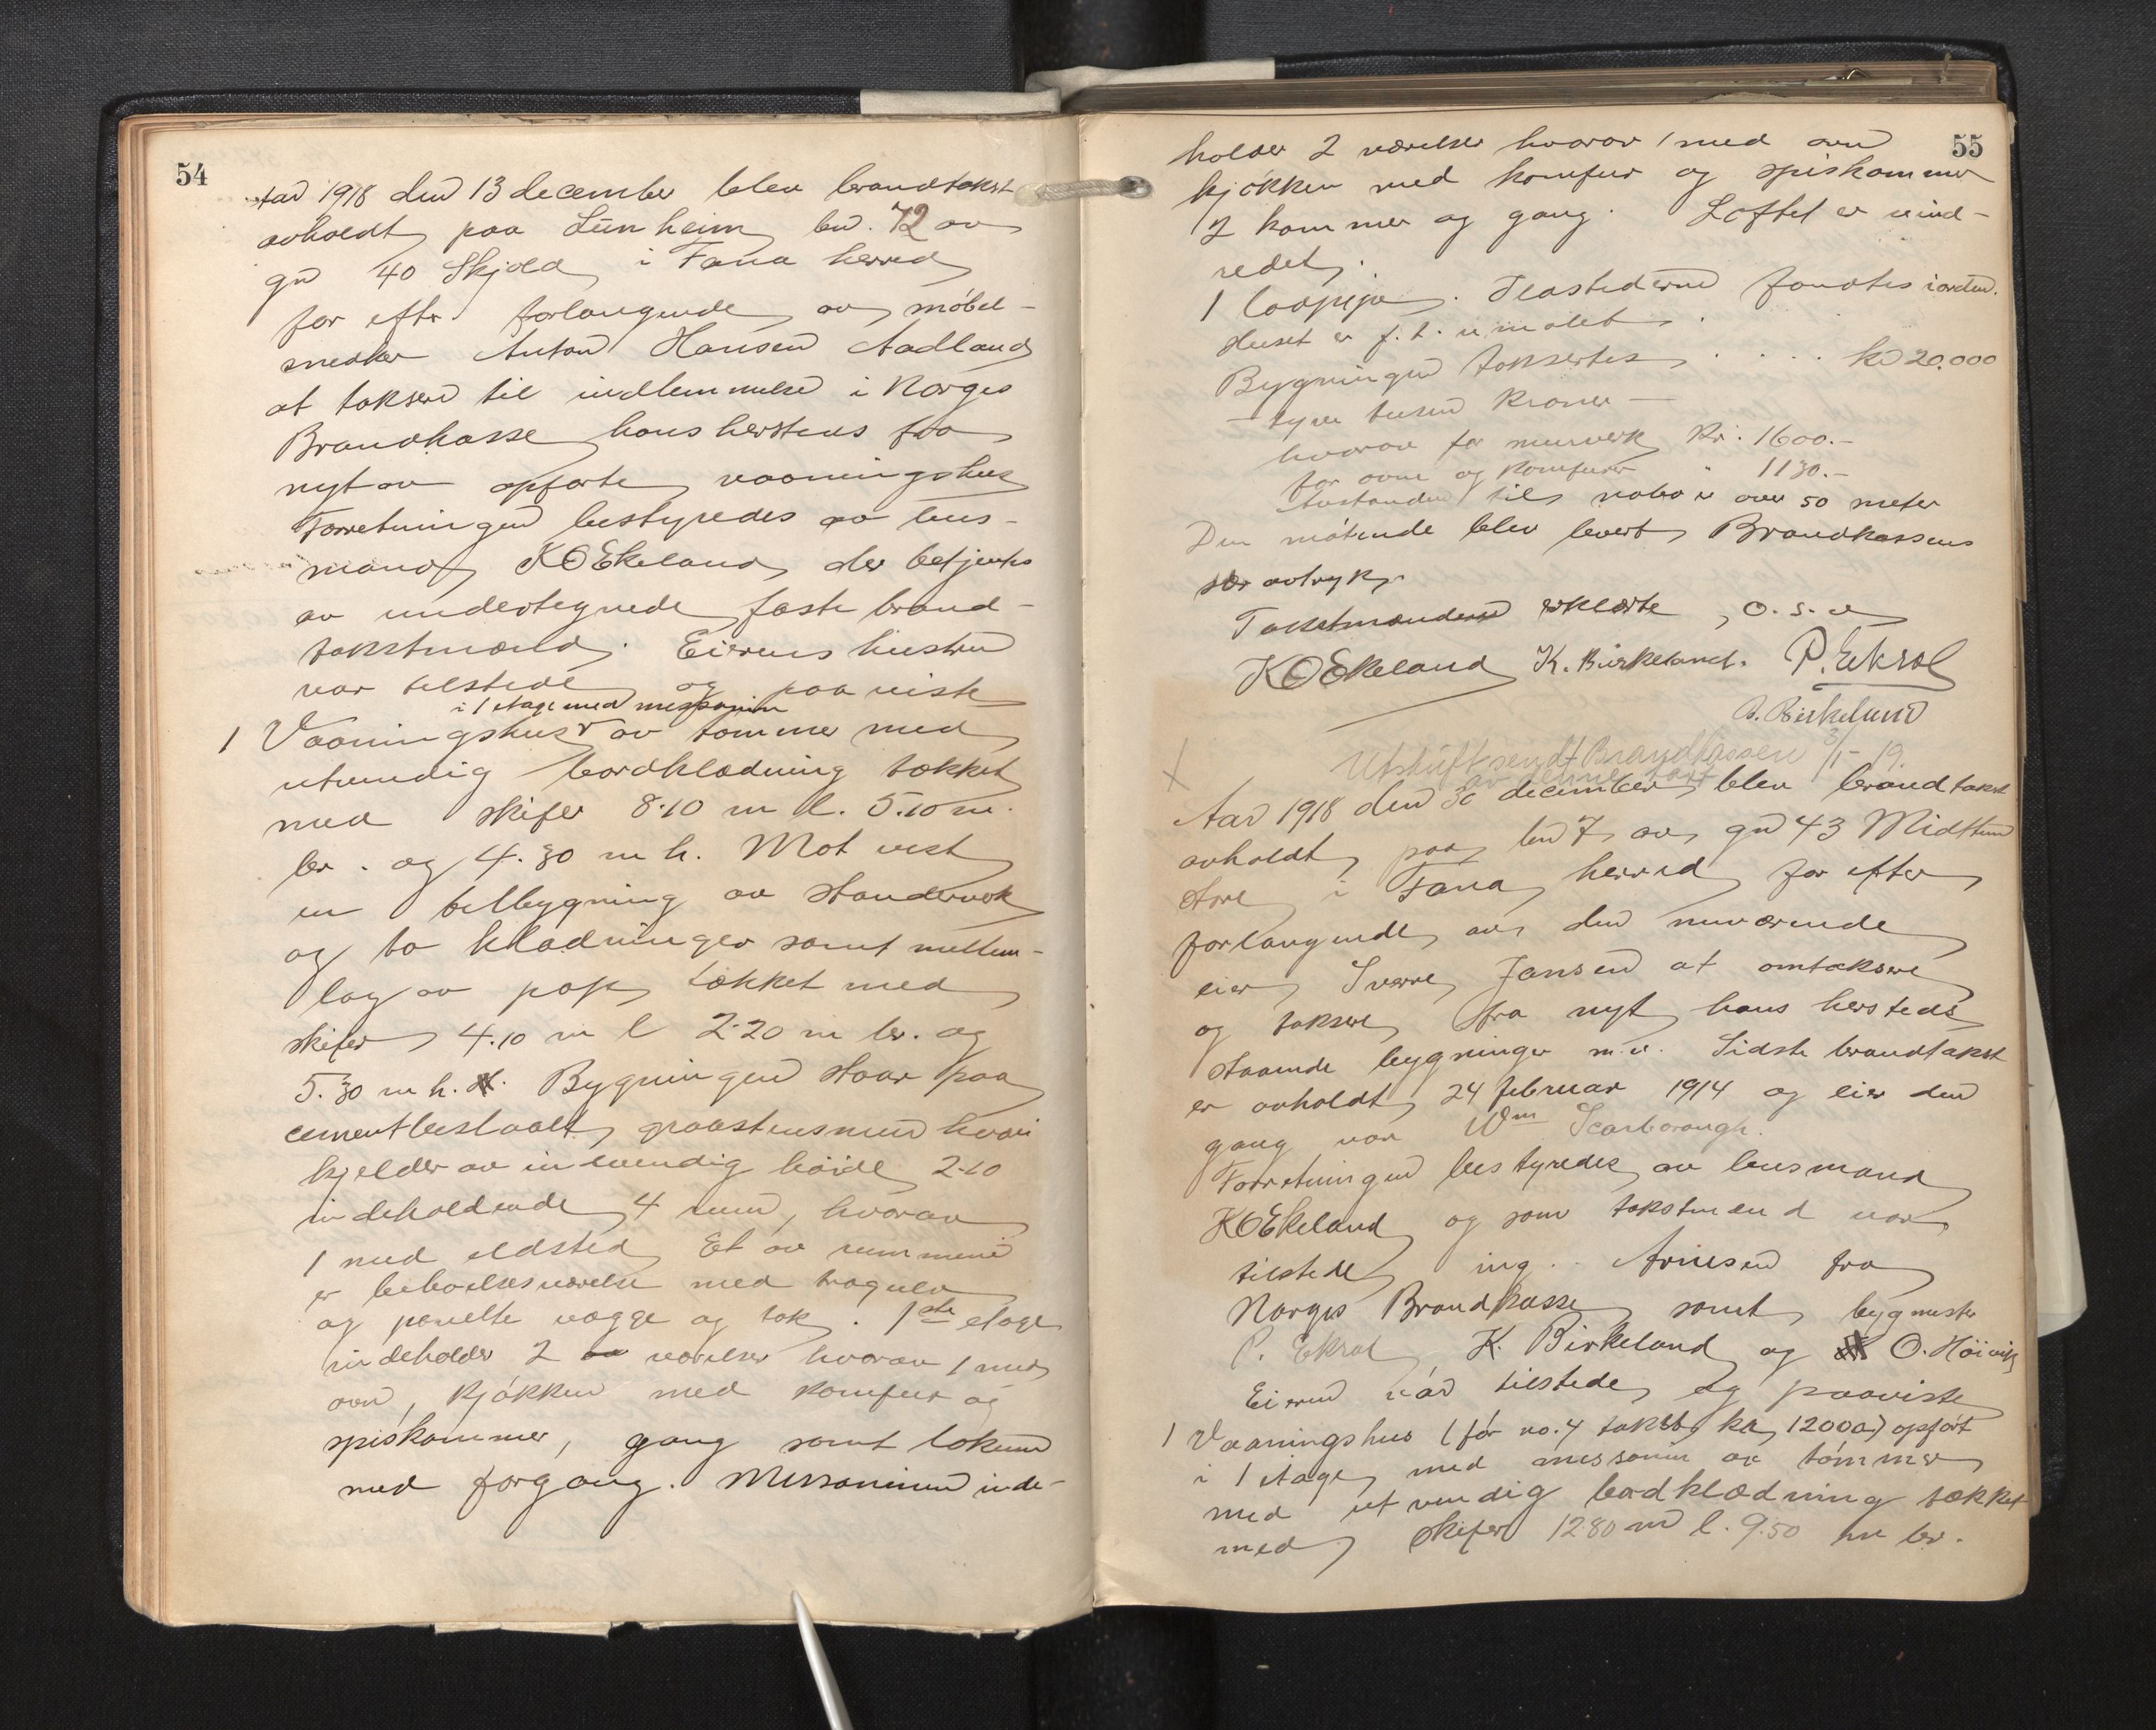 54
Aar 1918 den 13 december blev brandtakst
avholdt paa Lunheim bn. 72 av
gn 40 Skjold i Fana herred
for efter forlangende av møbel-
snedker Anton Hansen Aadland
at taksere til indlemmelse i Norges
Brandkasse hans hersteds fra
nyt av opførte vaaningshus
Forretningen bestyredes av lens-
mand K O Ekeland der betjentes
av undertegnede faste brand-
takstmænd. Eierens hustru
var tilstede og paaviste
i 1 etage med messanin
1 Vaaningshus av tømmer med
utvendig bordklædning tækket
med skifer 8.10 m l. 5.10 m.
br. og 4.30 m h. Mot vest
en tilbygning av standerverk
og to klædninger samt mellem-
lag av pap tækket med
skifer 4.10 m l 2.20 m br. og
5.30 m h. Bygningen staar paa
cementbeslaatt graastensmur hvori
kjelder av indvendig høide 2.10
indeholdende 4 rum, hvorav
1 med ildsted. Et av rummene
er beboelsesværelse med trægulv
og panelte vægge og tak. 1ste etage
indeholder 2 værelser hvorav 1 med
ovn, kjøkken med komfur og
spiskammer, gang samt lokum
med forgang. Messaninen inde-
55
holder 2 værelser hvorav 1 med ovn
kjøkken med komfur og spiskammer
2 kammer og gang. Loftet er uind-
redet.
1 løppipe. Ildstederne fandtes i orden.
Huset er f. t. umalet.
Bygningen taksertes . . . . kr 20.000
— tyve tusen kroner —
hvorav for murverk kr. 1600.-
for ovne og komfurer " 1130.-
Avstanden til nabo er over 50 meter
Den møtende blev levert Brandkassens
særavtryk.
Takstmændene erklærte, o. s. v
K O Ekeland K. Birkeland. P. Eksol
B. Birkelund
Utskrift sendt Brandkassen 3/1 - 19.
av denne takst
Aar 1918 den 30 december blev brandtakst
avholdt paa bn 7 av gn 43 Midttun
store i Fana herred for efter
forlangende av den nuværende
eier Sverre Jansen at omtaksere
og taksere fra nyt hans hersteds
staaende bygninger m. v. Sidste brandtakst
er avholdt 24 februar 1914 og eier den
gang var Wm Scarborough.
Forretningen bestyredes av lensmand
K O Ekeland og som takstmænd var
tilstede ing. Arnesen fra
Norges Brandkasse samt bygmester
P. Eksol K. Birkeland og O. Høivik
Eieren var tilstede og paaviste
1 Vaaningshus (før no. 4 takst kr 12000) opført
i 1 etage med messanin av tømmer
med utvendig bordklædning tækket
med skifer 12.80 m l. 9.50 m br.